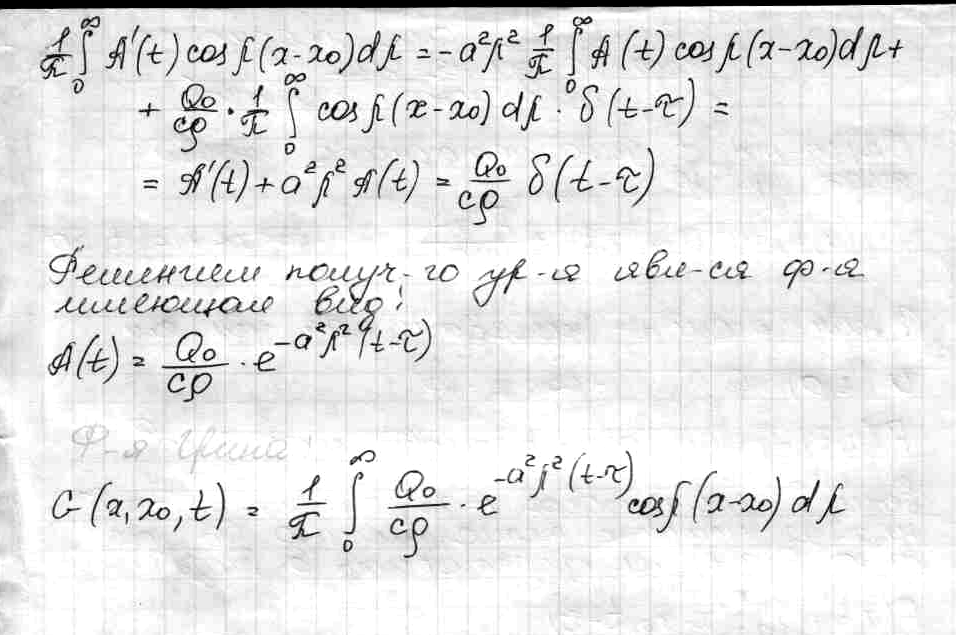 1/π ∫₀^∞ A'(t) cos β(x-x₀) dβ = -a²β² 1/π ∫₀^∞ A(t) cos β(x-x₀) dβ +
+ Q₀/cρ · 1/π ∫₀^∞ cos β(x-x₀) dβ · δ(t-τ) =
= A'(t) + a²β² A(t) = Q₀/cρ δ(t-τ)
Решением получ-го ур-я явл-ся ф-я
имеющая вид:
A(t) = Q₀/cρ · e^(-a²β²(t-τ))
Ф-я Грина:
G(x,x₀,t) = 1/π ∫₀^∞ Q₀/cρ · e^(-a²β²(t-τ)) cos β(x-x₀) dβ